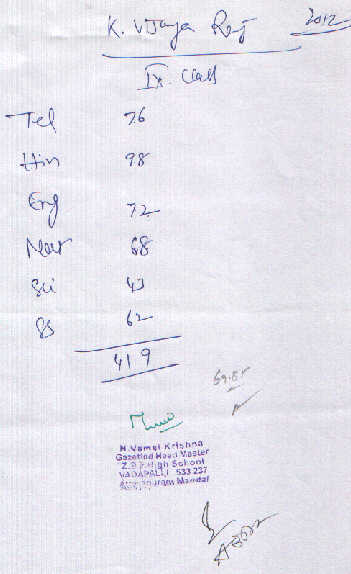 K. Vijaya Raj 2012
IX. Class
Tel 76
Hin 98
Eng 72
Mat 68
Sci 43
SS 62
419
59.85
N.Vamsi Krishna
Gazetted Head Master
Z.P.P.High School
VADAPALLI 533 237
Mandal